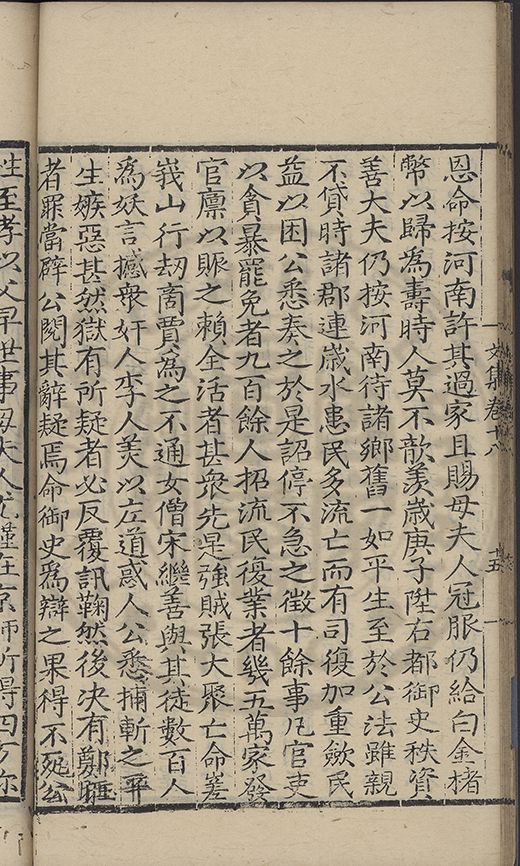 恩命按河南許其過家且賜毋夫人冠服仍給白金楮
幣以歸為壽時人莫不歆羡歲庚子陞右都御史秩資
善大夫仍按河南待諸鄉舊一如平生至於公法雖親
不貸時諸郡連歲水患民多流亡而有司復加重斂民
益以困公悉奏之於是詔停不急之徵十餘事凡官吏
以貪暴罷免者九百餘人招流民復業者幾五萬家發
官廪以賑之賴全活者甚衆先是強賊張大聚亡命嵳
峩山行刼商賈為之不通女僧宋繼善與其徒數百人
為妖言撼衆奸人李人美以左道惑人公悉捕斬之平
生嫉惡甚然獄有所疑者必反覆訊鞠然後决有鄭
者罪當辟公閱其辭疑焉命御史爲辯之果得不死公
性至孝以父早世事毋夫人尤謹在京師所得四方珎
文集卷十八
五